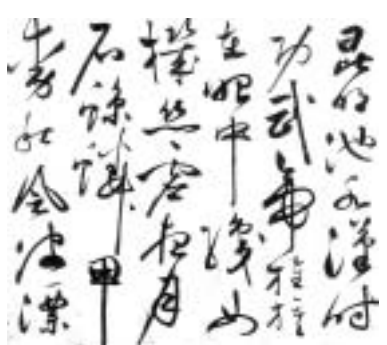 昆明池水漢時
功武帝旌旗
在眼中織女
機絲虛夜月
石鯨鱗甲
動秋風波漂